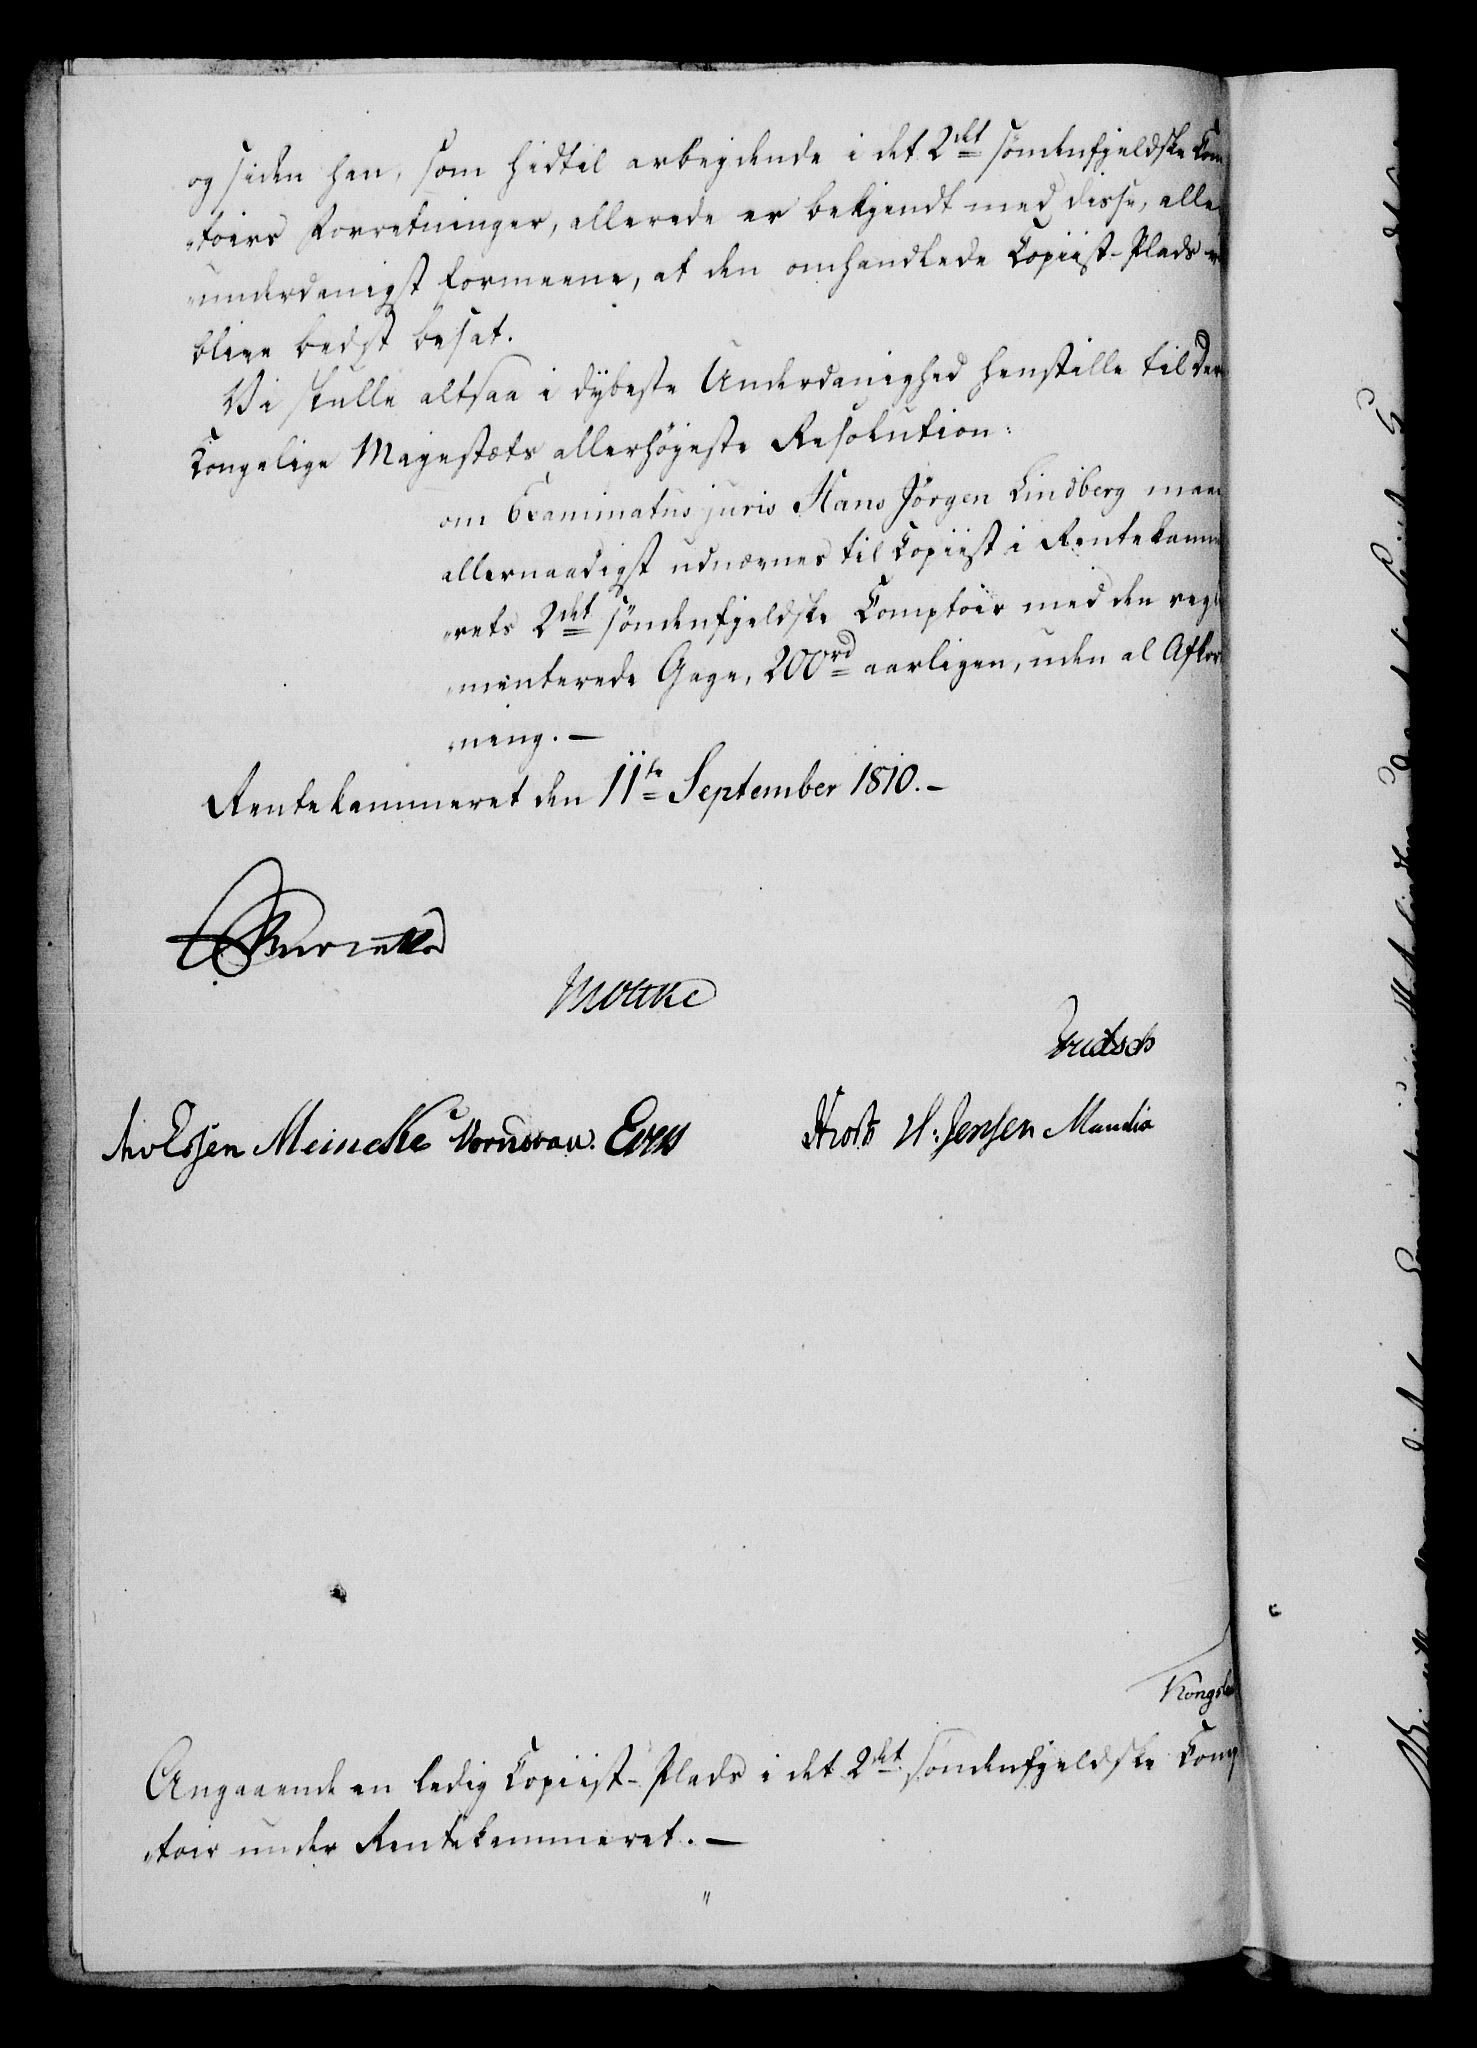 og siden han, som hidtil arbejdende i det 2det søndenfjeldske Com
-toirs Forretninger, allerede er bekjendt med disse, aller
-underdanigst formeene, at den omhandlede Copiist-Plads
blive bedst besat.
Vi skulle altsaa i dybeste Underdanighed henstille til Der
Kongelige Majestæts allerhöyeste Resolution:
om Examinatus juris Hans Jörgen Lindberg maae
allernaadigst udnævnes til Copiist i Rentekamme
-rets 2det søndenfjeldske Comptoir med den regle
-menterede Gage, 200rd aarligen, uden al Afkor
-ning. —
Rentekammeret den 11te September 1810. –
Moltke
Meincke
H: Jensen
Kongs
Angaaende en ledig Copiist-Plads i det 2det søndenfjeldske Comp
-toir under Rentekammeret. —